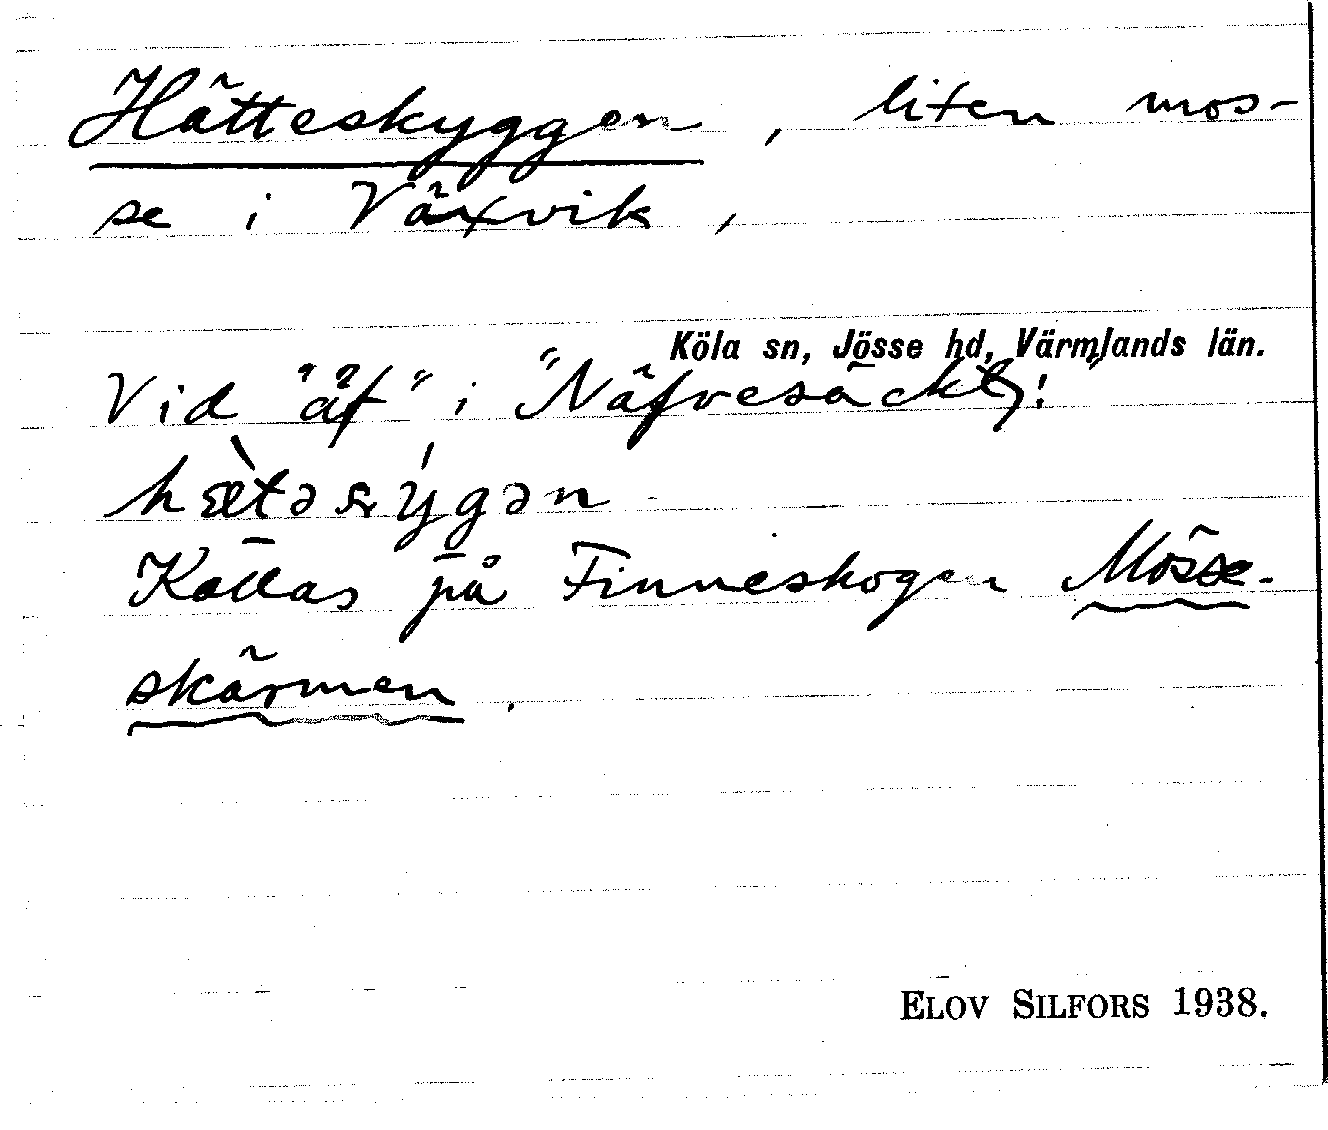 Hätteskyggen, liten mos-
se i Växvik,
Köla sn, Jösse hd, Värmlands län.
Vid "äf" i "Näfvesäck"!
Kallas på Finneskogen Mösse-
skärmen.
ELOV SILFORS 1938.